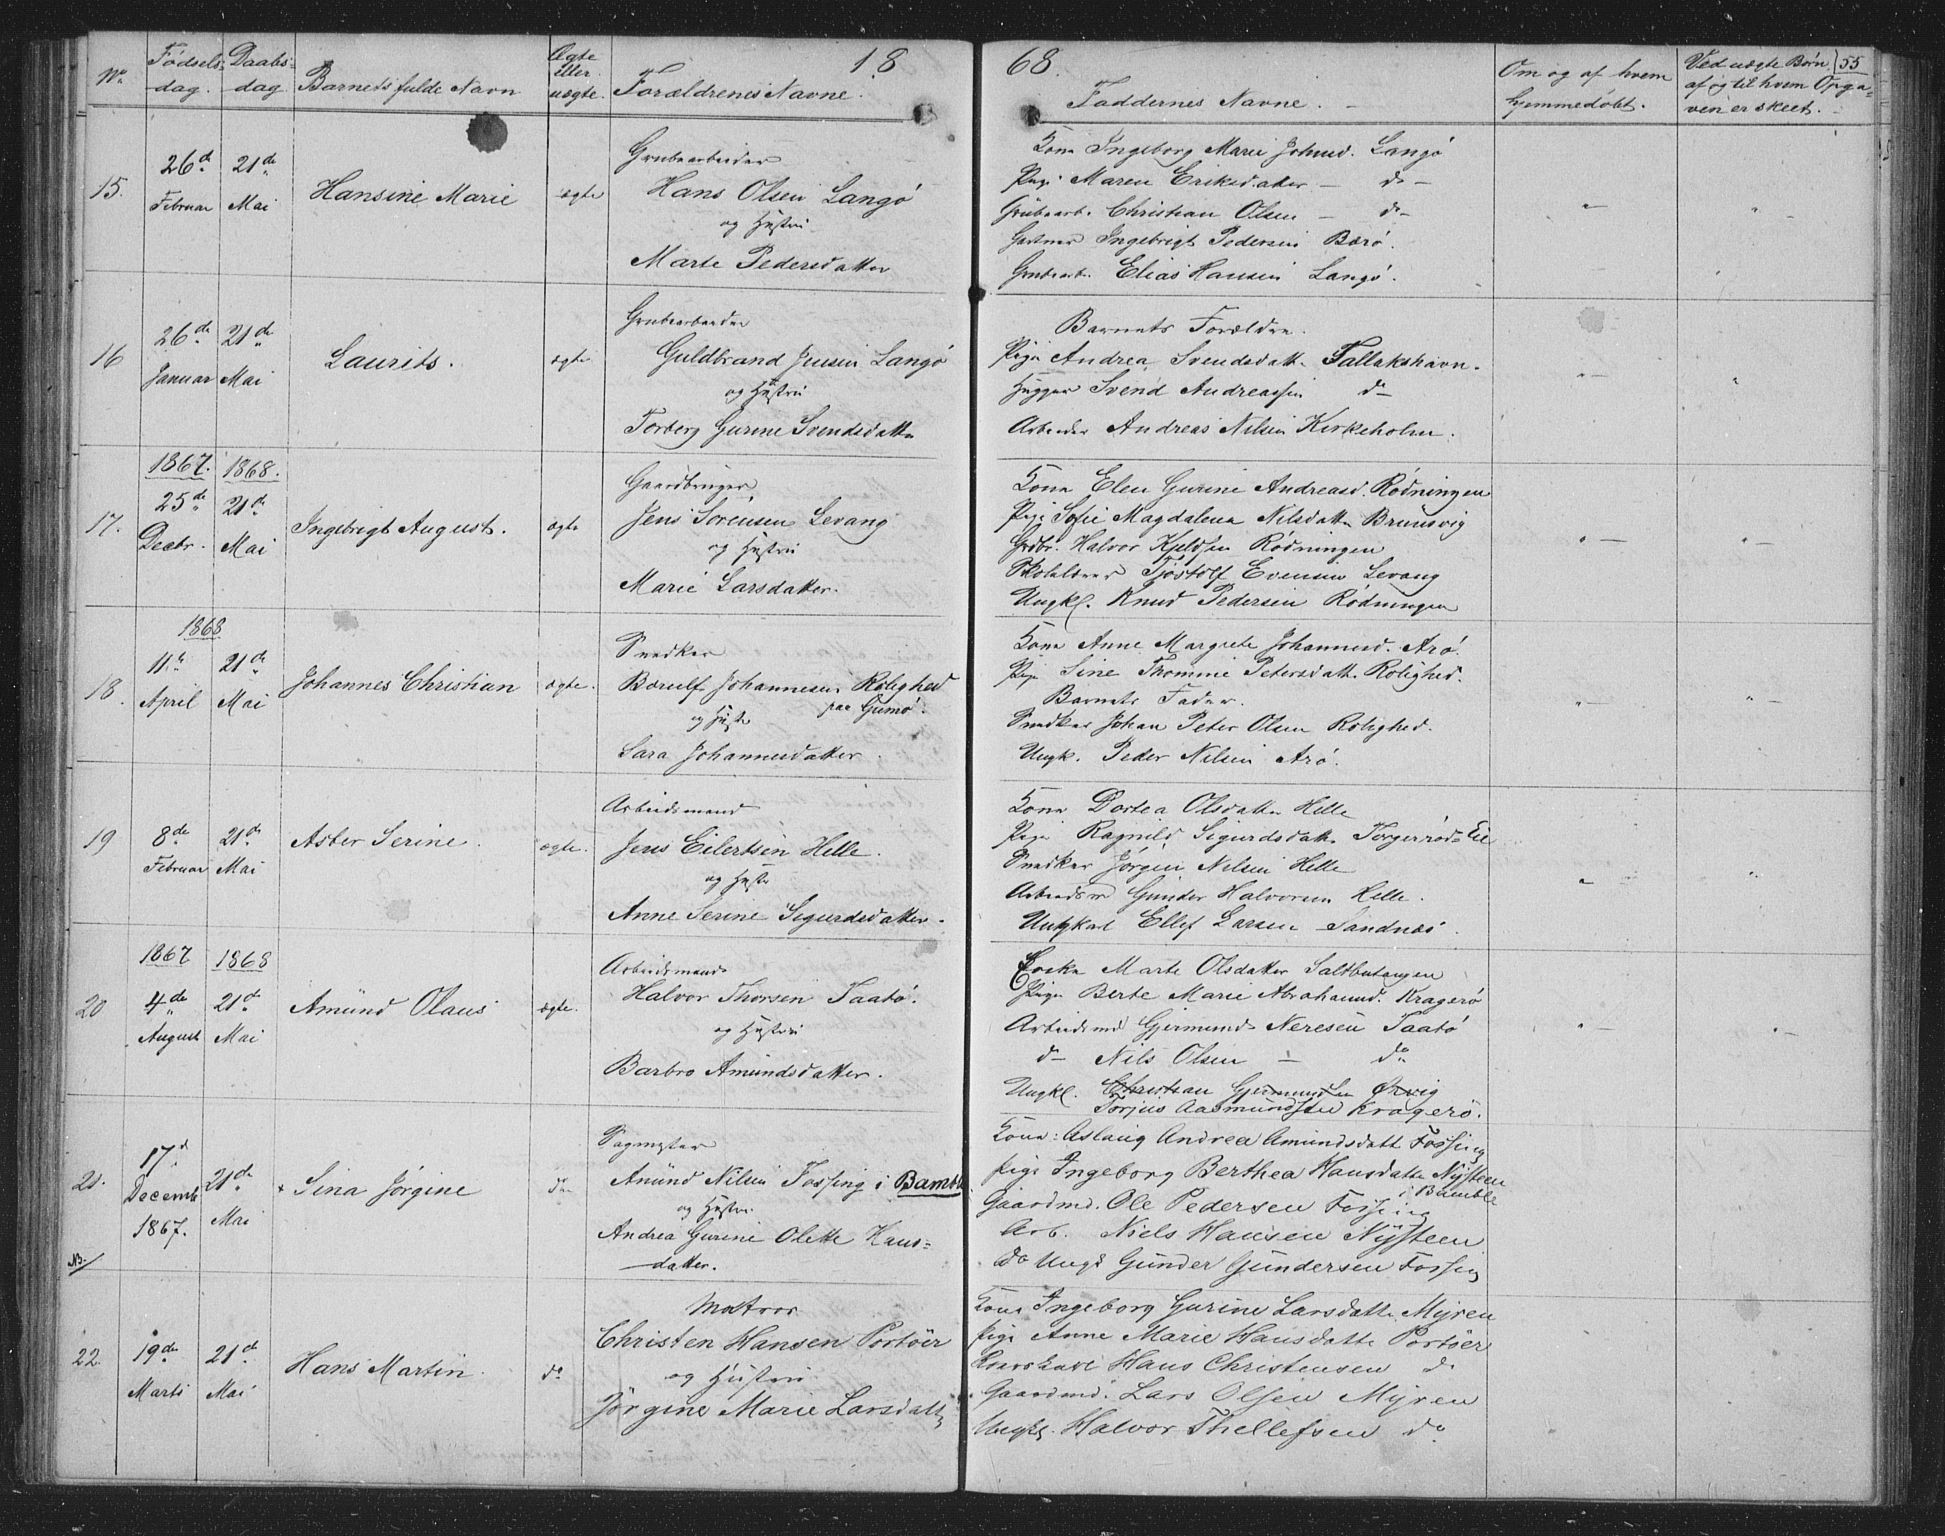 1868.
55
No. Fødsels-dag. Daabs-dag Barnets fulde Navn Ægte eller uægte. Forældrenes Navne.
Faddernes Navne. Om og af hvem hjemmedøbt. Ved uægte Børn, af og til hvem Opgaven er skeet.
15. 26de Februar 21de Mai Hansine Marie ægte
Grubearbeider
Hans Olsen Langö
og Hustru
Marte Pedersdatter
Kone Ingeborg Marie Johnsd. Langö
Pige Maren Eriksdatter — do —
Grubearb. Christian Olsen — do —
Gartner Ingebrigt Pedersen Bærö.
Grubearb. Elias Hansen Langö.
16 26de Januar 21de Mai Laurits. ægte
Grubearbeider
Guldbrand Jensen Langö
og Hustru
Torberg Gurine Svendsdatter
Barnets Forældre.
Pige Andrea Svendsdatt. Tallakshavn.
Hugger Svend Andreassen do
Arbeider Andreas Nilsen Kirkeholm.
17. 1867. 25de Decbr. 1868. 21de Mai Ingebrigt August. ægte
Gaardbruger
Jens Sørensen Levang
og Hustru
Marie Larsdatter.
Kone Elen Gurine Andreasd. Rødningen
Pige Sofie Magdalena Nilsdatter Brunsvig
Grdbr. Halvor Kjeldsen Rødningen
Skolelærer Tjøstolf Evensen Levang
Ungkl. Knud Pedersen Rødningen
18. 1868 11te April 21de Mai Johannes Christian ægte.
Snedker
Børulf Johannesen Rolighed
paa Gumø.
og Hustr
Sara Johannesdatter.
Kone Anne Margrete Johannesd. Arö.
Pige Sine Thomine Petersdatt. Rolighed.
Barnets Fader.
Snedker Johan Peter Olsen Rolighed.
Ungk. Peder Nilsen Arö.
19 8de Februar 21de Mai Asber Serine. ægte.
Arbeidsmand
Jens Eilertsen Helle.
og Hustr
Anne Serine Sigurdsdatter.
Kone Dortea Olsdatter Helle
Pige Ragnild Sigurdsdatt. Torgersrøds Eie
Snedker Jørgen Nilsen Helle
Arbeidsm Gunder Halvorsen Helle.
Ungkarl Ellef Larsen Sandnæs.
20 1867 4de August 1868 21de Mai Amünd Olaus ægte.
Arbeidsmand
Halvor Thorsen Taatö.
og Hustru
Barbro Amundsdatter.
Enke Marte Olsdatter Saltbutangen
Pige Berte Marie Abrahamsd. Kragerö
Arbeidsmd Gjermund Neresen Taatö
do Nils Olsen — do
Ungkl. Christian Gjermundsen Ørvig
Torjus Aasmundsen Kragerö.
21. 17d Decemb 1867. 21de Mai × Sina Jørgine do
Sagmester
Amünd Nilsen Fossing i Bamble
og Hustru
Andrea Gurine Olette Hans-
datter.
NB.
Kone: Aslaug Andrea Amundsdatt Fossing
Pige Ingeborg Berthea Hansdatte Nÿsteen
i Bamble
Gaardmd. Ole Pedersen Fossing
Arb. Niels Hansen Nÿsteen
do Ungk Gunder Gundersen Fossing
22. 19de Marts 21de Mai Hans Martin. do
Matros
Christen Hansen Portöer
og Hustru
Jörgine Marie Larsdatt
Kone Ingeborg Gurine Larsdatte Mÿren
Pige Anne Marie Hansdatte Portöer
Hans Christensen do
Gaardmd. Lars Olsen Mÿren
Ungkl. Halvor Thellefsen do